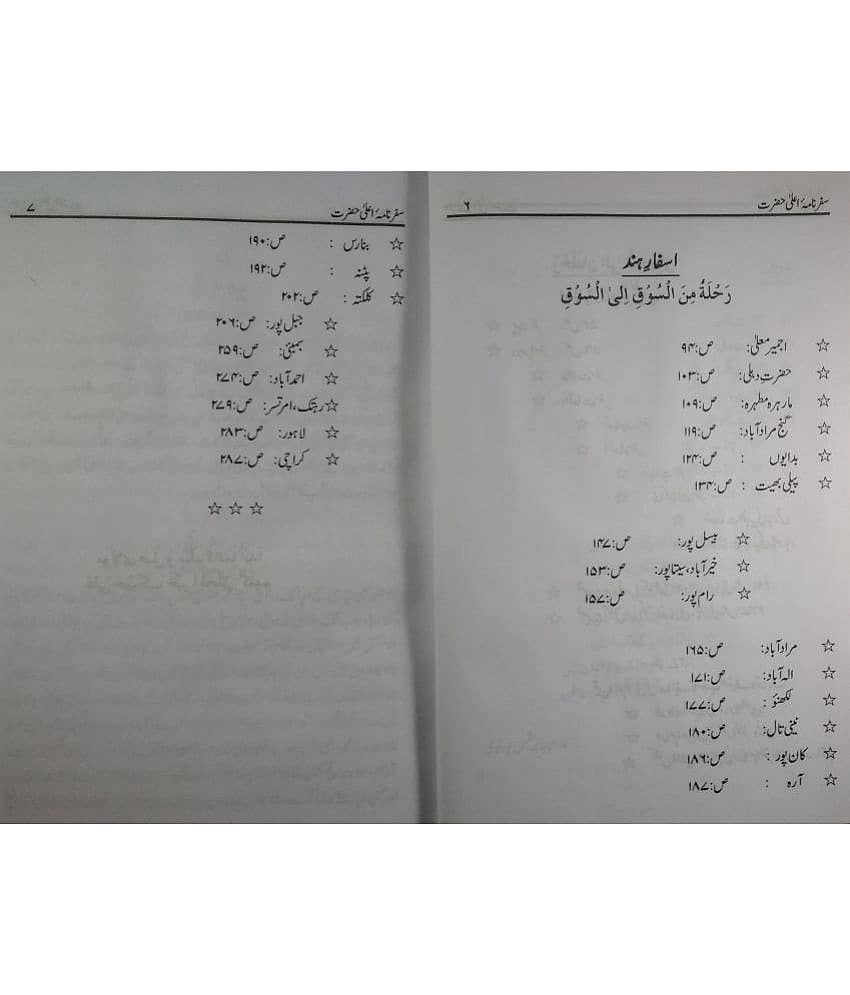 سفرنامۂ اعلیٰ حضرت ۶
اسفارِ ہند
رَحْلَةُ مِنَ الْسُوْقِ اِلیٰ الْسُوْقِ
☆ اجمیر معلیٰ: ص:۹۴
☆ حضرتِ دہلی: ص:۱۰۳
☆ مارہرہ مطہرہ: ص:۱۰۹
☆ گنج مرادآباد: ص:۱۱۹
☆ بدایوں : ص:۱۲۴
☆ پیلی بھیت : ص:۱۳۴
☆ بیسل پور: ص:۱۴۷
☆ خیرآباد،سیتاپور: ص:۱۵۳
☆ رام پور: ص:۱۵۷
☆ مرادآباد: ص:۱۶۵
☆ الہ آباد: ص:۱۷۱
☆ لکھنؤ : ص:۱۷۷
☆ نینی تال: ص:۱۸۰
☆ کان پور : ص:۱۸۶
☆ آرہ : ص:۱۸۷
سفرنامۂ اعلیٰ حضرت ۷
☆ بنارس : ص:۱۹۰
☆ پٹنہ : ص:۱۹۲
☆ کلکتہ : ص:۲۰۲
☆ جبل پور: ص:۲۰۶
☆ بمبئی: ص:۲۵۹
☆ احمدآباد: ص:۲۷۴
☆ رہتک،امرتسر: ص:۲۷۹
☆ لاہور: ص:۲۸۳
☆ کراچی: ص:۲۸۷
☆ ☆ ☆